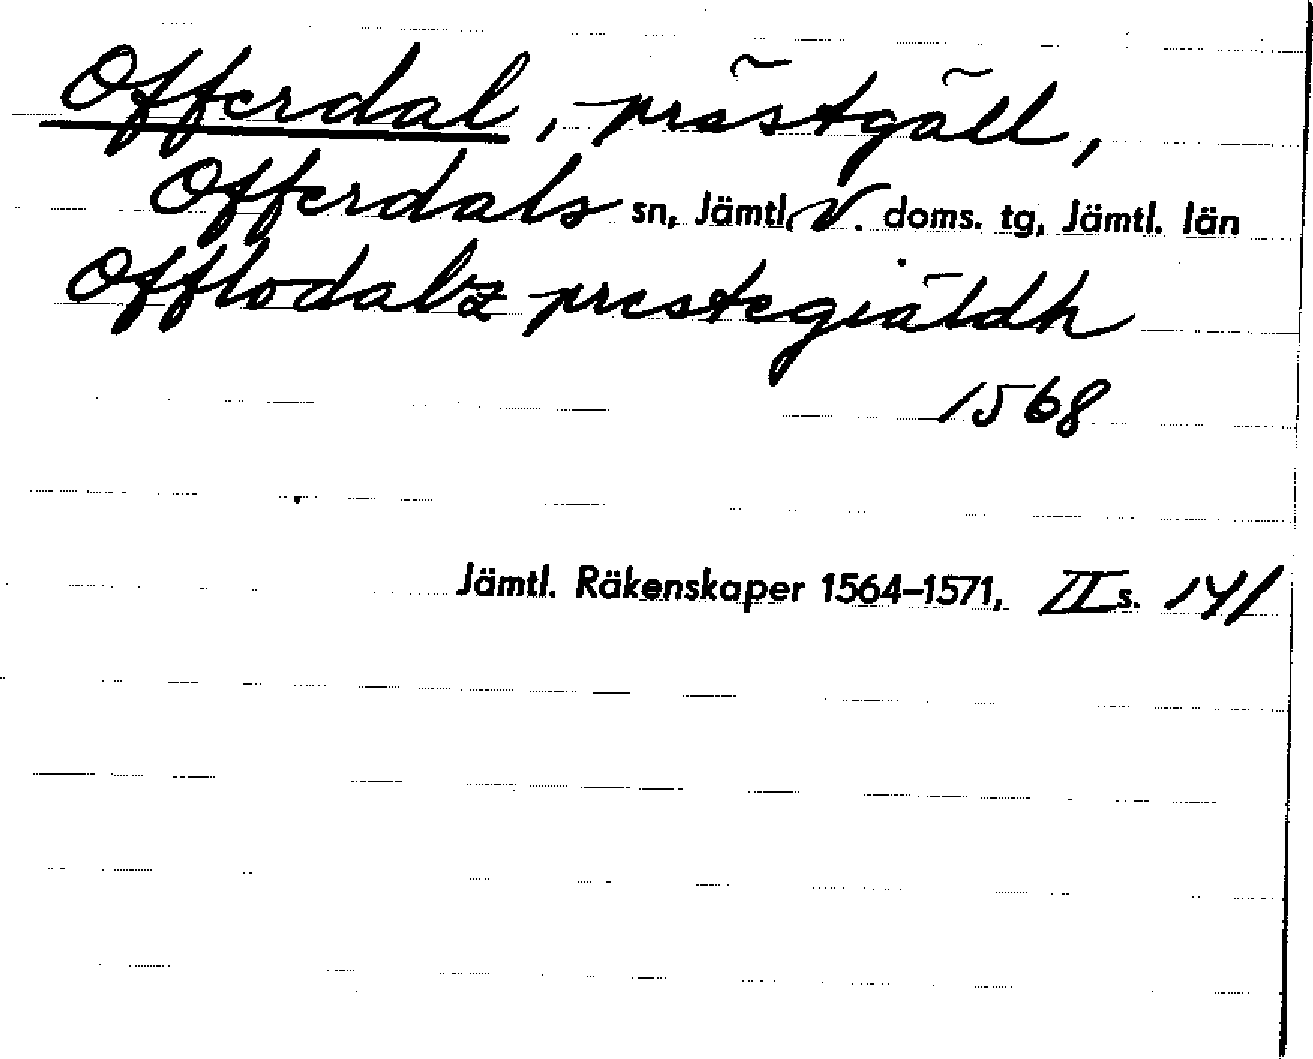 Offerdal, prästgäll,
Offerdals sn, Jämtl. V. doms. tg, Jämtl. län
Offlodalz prestegiäldh
1568
Jämtl. Räkenskaper 1564–1571, II s. 141